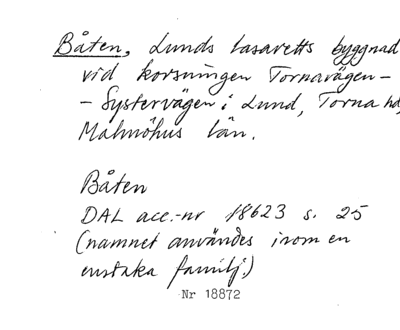 Båten, Lunds lasaretts byggnad
vid korsningen Tornavägen -
- Systervägen i Lund, Torna hd,
Malmöhus län.
Båten
DAL acc.-nr 18623 s. 25
(namnet användes inom en
enstaka familj.)
Nr 18872